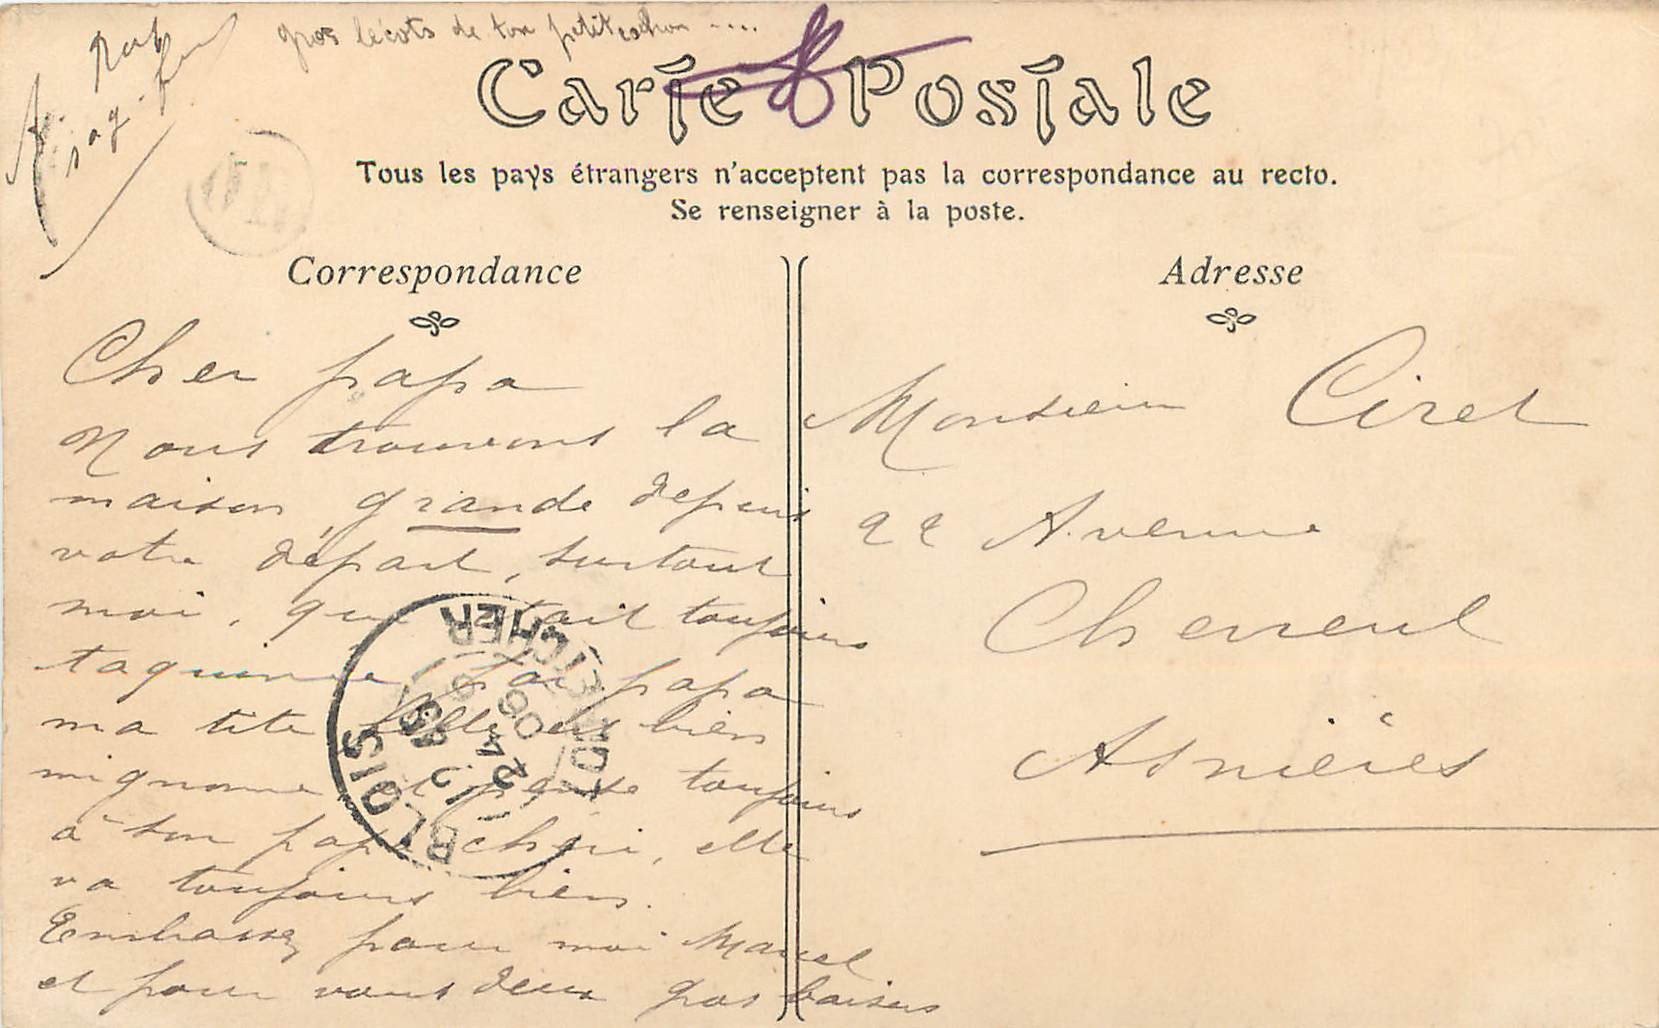 gros bécots de ton petit cochon ....
Carte Postale
Tous les pays étrangers n'acceptent pas la correspondance au recto.
Se renseigner à la poste.
Correspondance
Cher papa
Nous trouvons la
maison grande depuis
votre départ, surtout
moi, qui était toujours
taquinée par papa
ma tite fille est bien
mignonne et pense toujours
à son papa chéri, elle
va toujours bien.
Embrassez pour moi Marcel
et pour vous deux gros baisers
BLOIS
LOIR-ET-CHER
Adresse
Monsieur Ciret
22 Avenue
Chevreul
Asnières